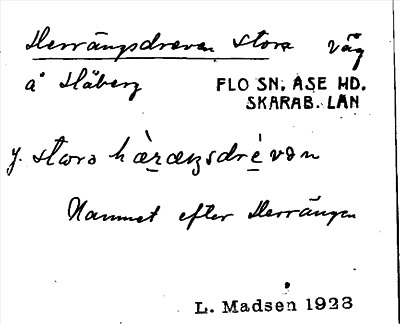 Herrängsdreven Stora väg
å Håberg
FLO SN. ÅSE HD.
SKARAB. LÄN
y. stora hæ̀ræŋsdré vən
Namnet efter Herrängen
L. Madsen 1923